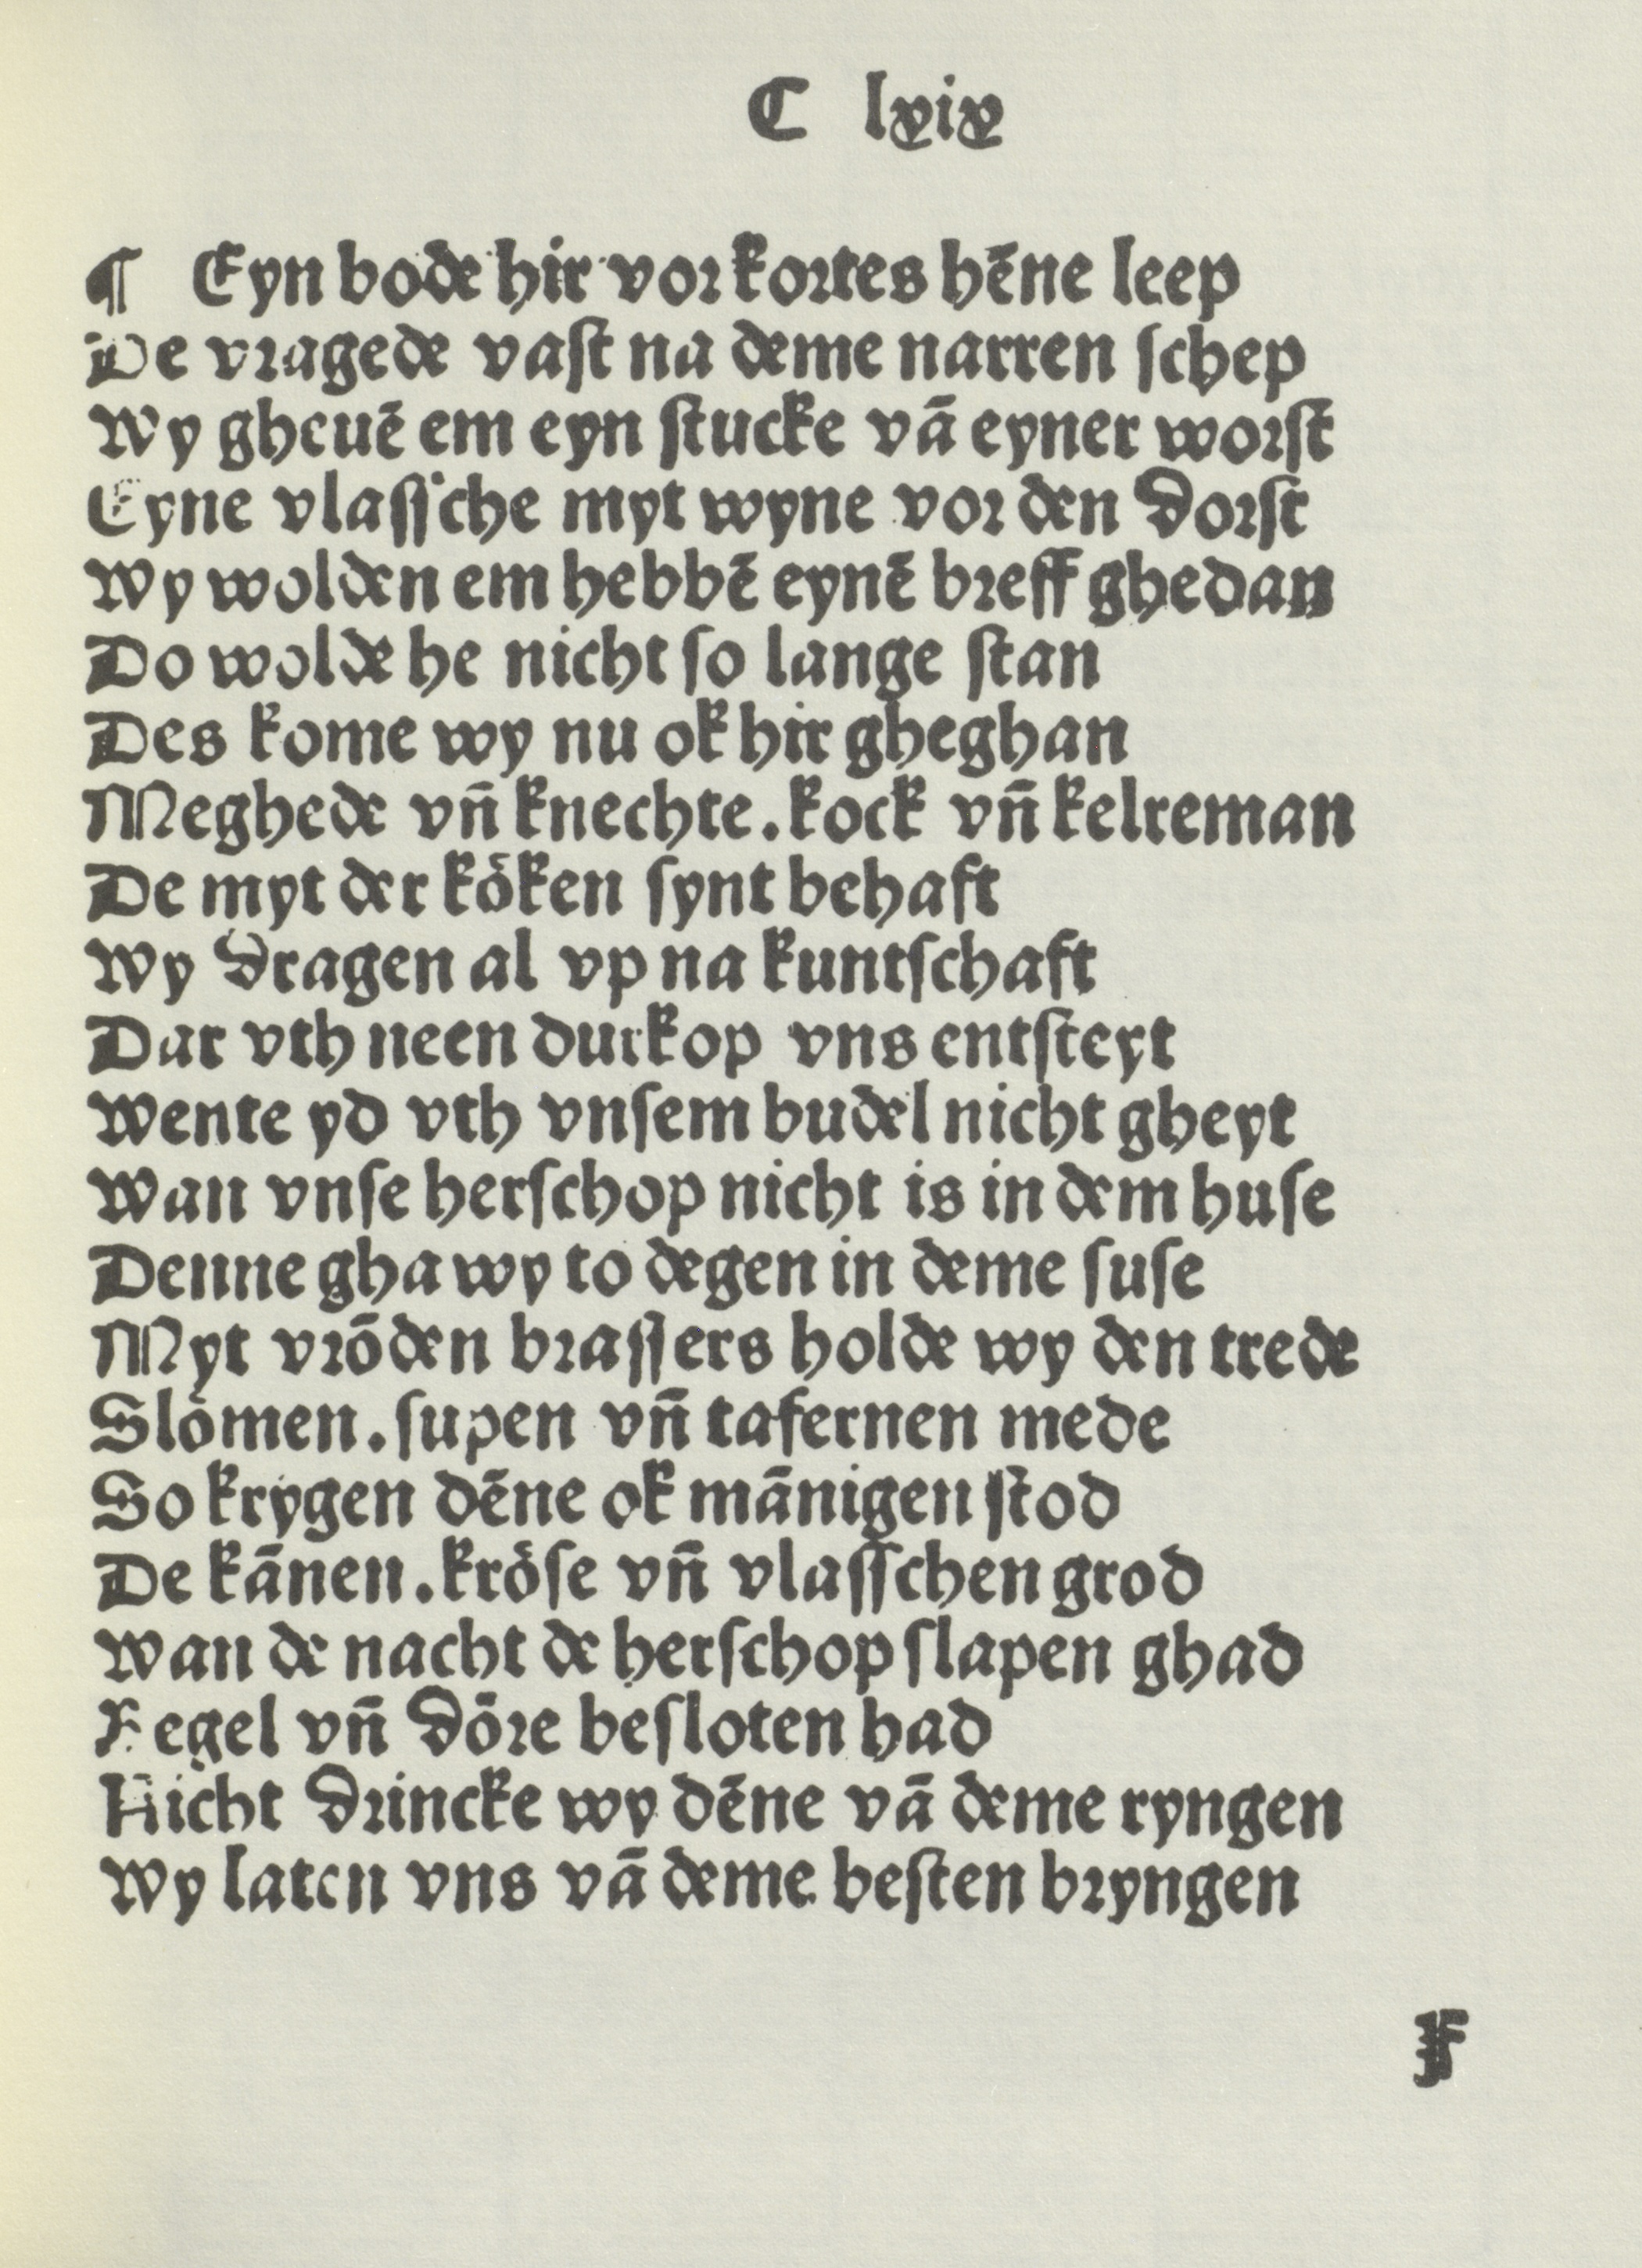 C lxix
¶ Eyn bode hir vor kortes hēne leep
De vragede vaſt na deme narren ſchep
Wy gheuē em eyn ſtucke vā eyner worſt
Eyne vlaſſche myt wyne vor den dorſt
Wy wolden em hebbē eynē breff ghedan
Do wolde he nicht ſo lange ſtan
Des kome wy nu ok hir gheghan
Meghede vn̄ knechte. kock vn̄ kelreman
De myt der koͤken ſynt behaft
Wy dragen al vp na kuntſchaft
Dar vth neen durkop vns entſteyt
Wente yd vth vnſem budel nicht gheyt
Wan vnſe herſchop nicht is in dem huſe
Denne gha wy to degen in deme ſuſe
Myt vrōden braſſers holde wy den trede
Sloͤmen. ſupen vn̄ tafernen mede
So krygen dēne ok mānigen ſtod
De kānen. kroͤſe vn̄ vlaſſchen grod
Wan de nacht de herſchop ſlapen ghad
Regel vn̄ doͤre beſloten had
Nicht drincke wy dēne vā deme ryngen
Wy laten vns vā deme beſten bryngen
F